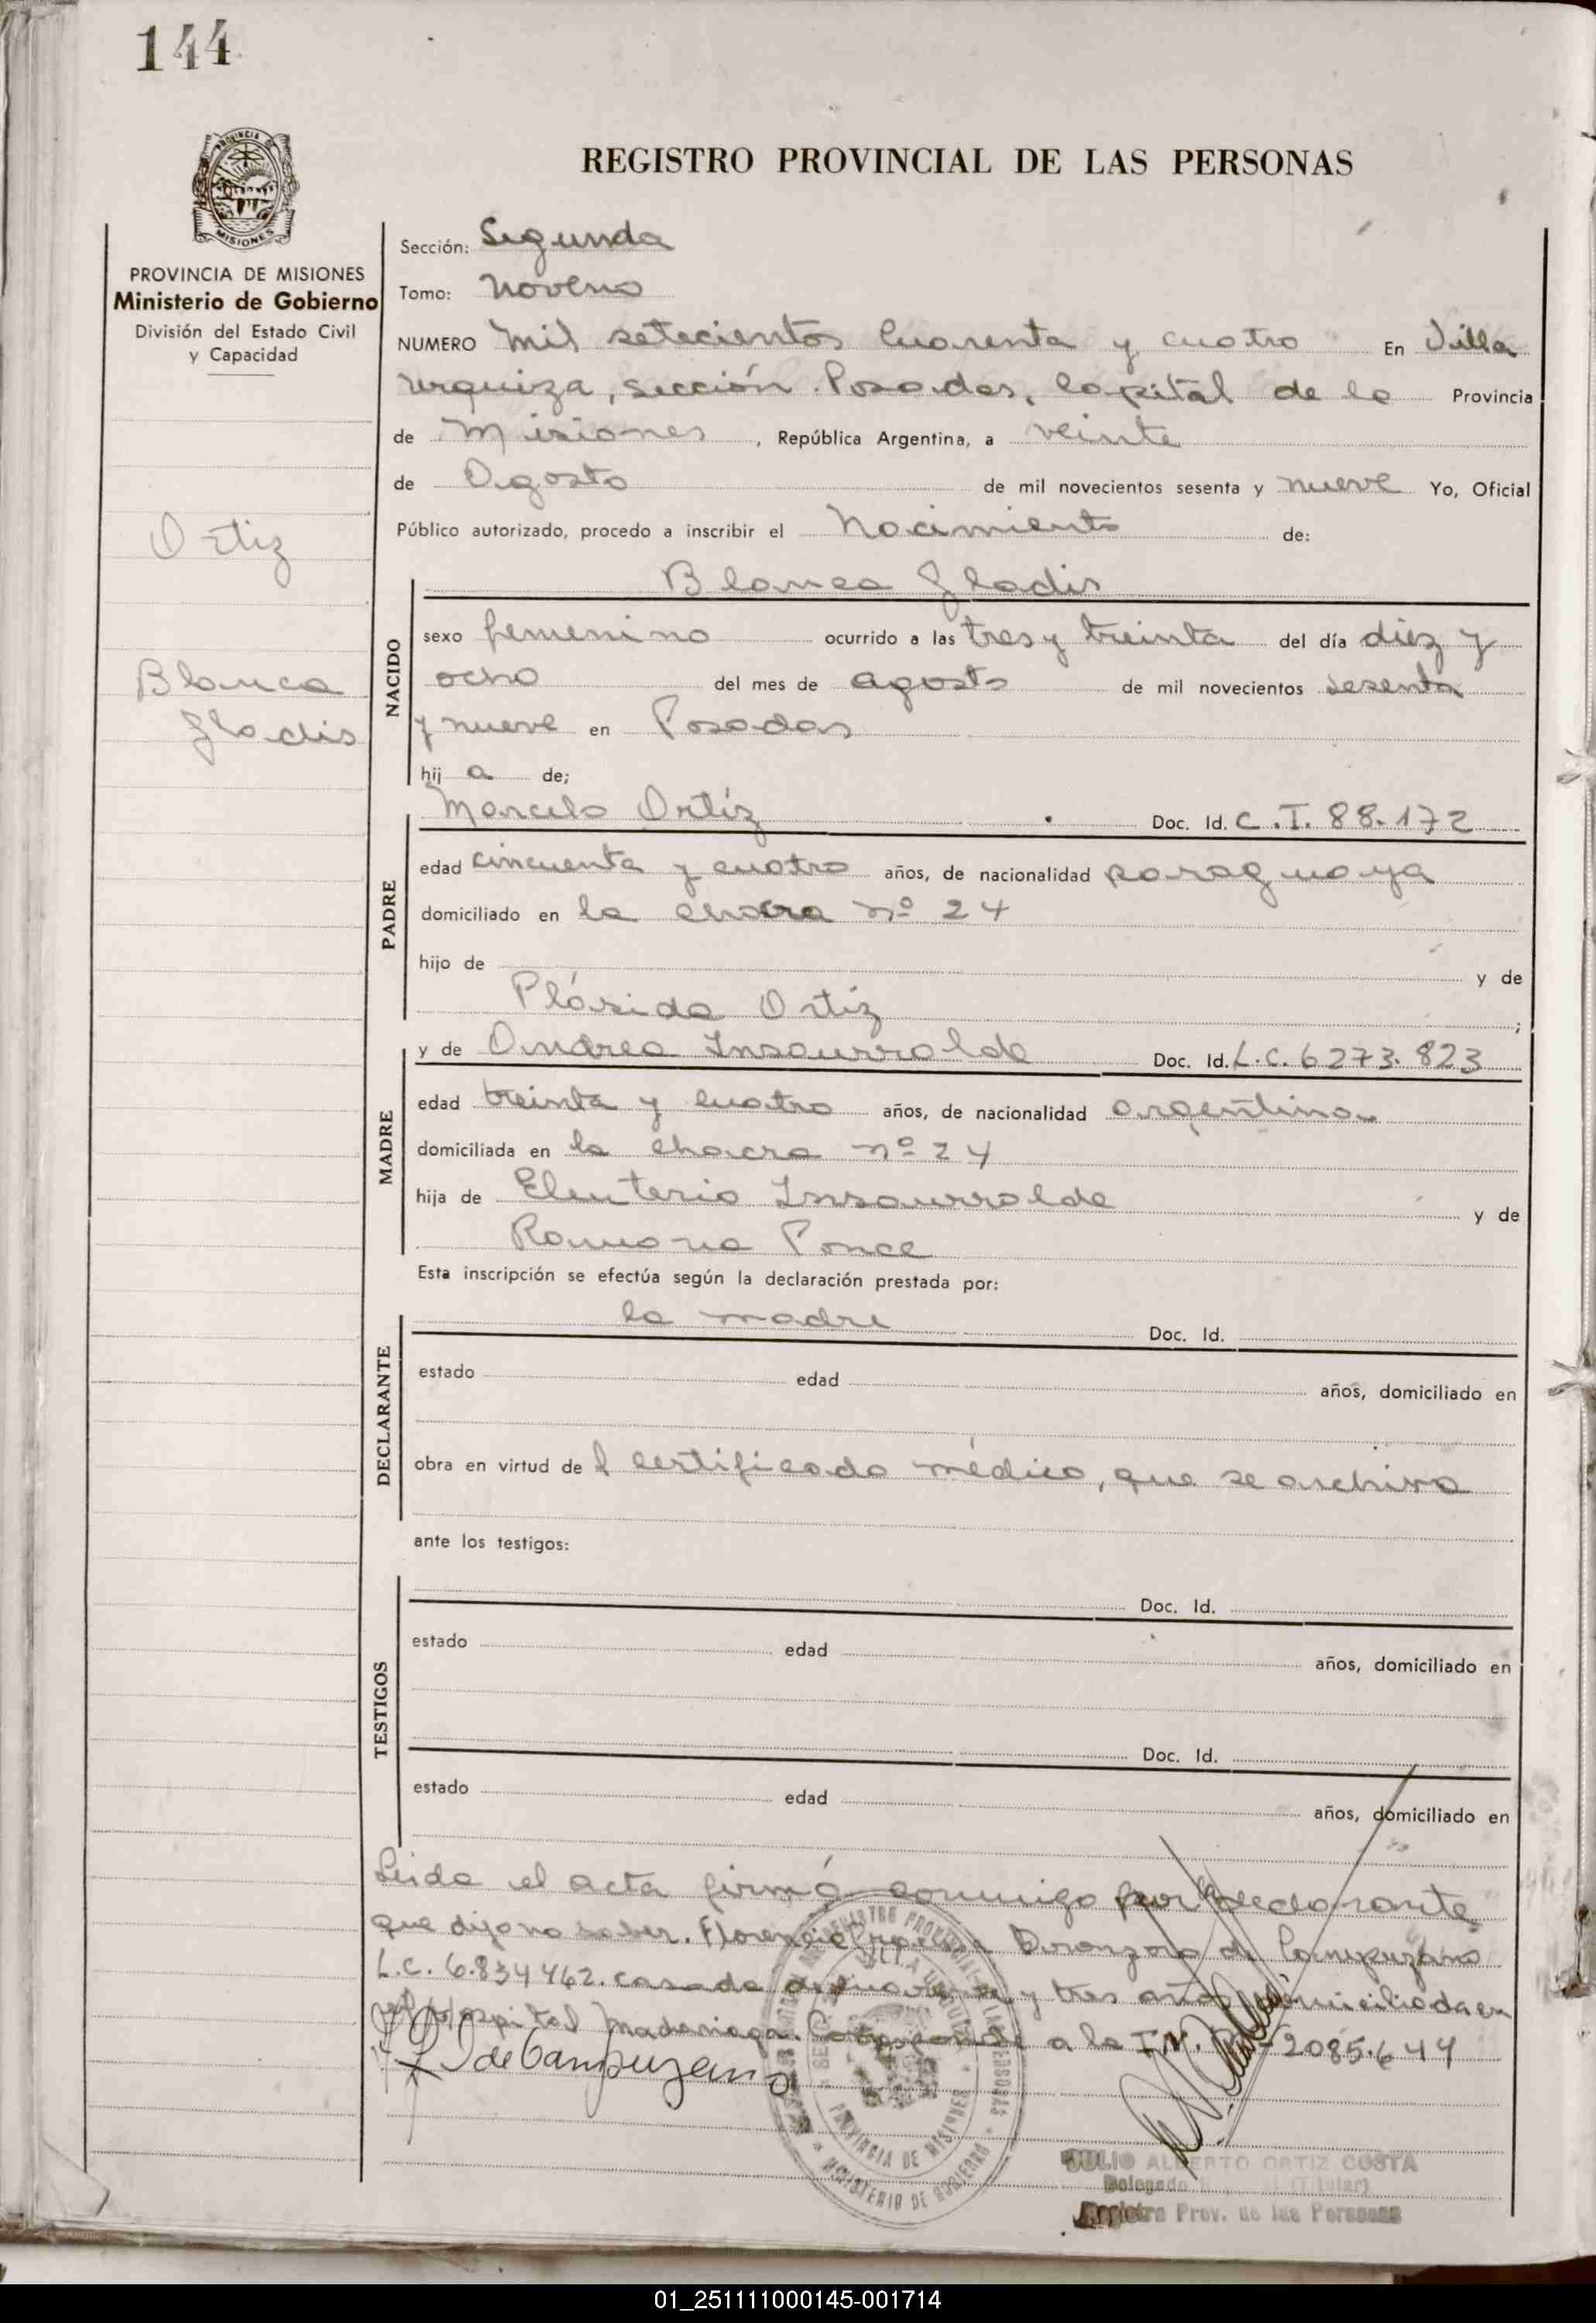 144
REGISTRO PROVINCIAL DE LAS PERSONAS
PROVINCIA
MISIONES
PROVINCIA DE MISIONES
Ministerio de Gobierno
División del Estado Civil
y Capacidad
Ortiz
Blanca
Gladis
Sección: Segunda
Tomo: Noveno
NUMERO Mil setecientos cuarenta y cuatro En Villa
Urquiza, sección Posadas, Capital de la Provincia
de Misiones, República Argentina, a veinte
de Agosto de mil novecientos sesenta y nueve Yo, Oficial
Público autorizado, procedo a inscribir el Nacimiento de:
Blanca Gladis
NACIDO
sexo femenino ocurrido a las tres y treinta del día diez y
ocho del mes de agosto de mil novecientos sesenta
y nueve en Posadas
hij a de;
Marcelo Ortíz Doc. Id. C.I. 88.172
PADRE
edad cincuenta y cuatro años, de nacionalidad paraguaya
domiciliado en la chacra nº 24
hijo de y de
Plásida Ortíz ;
MADRE
y de Andrea Insaurralde Doc. Id. L.C. 6273.823
edad treinta y cuatro años, de nacionalidad argentina
domiciliada en la chacra nº 24
hija de Eleuterio Insaurralde y de
Ramona Ponce
Esta inscripción se efectúa según la declaración prestada por:
la madre Doc. Id.
DECLARANTE
estado edad años, domiciliado en
obra en virtud de l certificado médico, que se archiva
ante los testigos:
TESTIGOS
Doc. Id.
estado edad años, domiciliado en
Doc. Id.
estado edad años, domiciliado en
Leida el acta firmó conmigo por la declarante
que dijo no saber. Florencia de Campuzano
L.C. 6.834462. casada de y tres años domiciliada en
el Hospital Madariaga. Corresponde a la 2085.644
de Campuzano
PROVINCIA DE MISIONES
MINISTERIO DE GOBIERNO
JULIO ALBERTO ORTIZ COSTA
Delegado (Titular)
Registro Prov. de las Personas
01_251111000145-001714